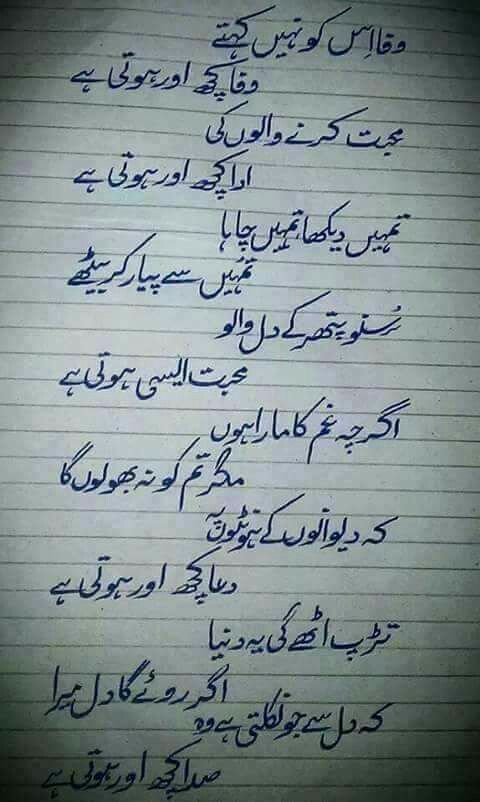 وفا اِس کو نہیں کہتے
وفا کچھ اور ہوتی ہے
محبت کرنے والوں کی
ادا کچھ اور ہوتی ہے
تمہیں دیکھا، تمہیں چاہا
تمہیں سے پیار کر بیٹھے
سُنو پتھر کے دل والو
محبت ایسی ہوتی ہے
اگرچہ غم کا مارا ہوں
مگر تم کو نہ بھولوں گا
کہ دیوانوں کے ہونٹوں پہ
دعا کچھ اور ہوتی ہے
تڑپ اٹھے گی یہ دنیا
اگر روئے گا دل میرا
کہ دل سے جو نکلتی ہے وہ
صدا کچھ اور ہوتی ہے